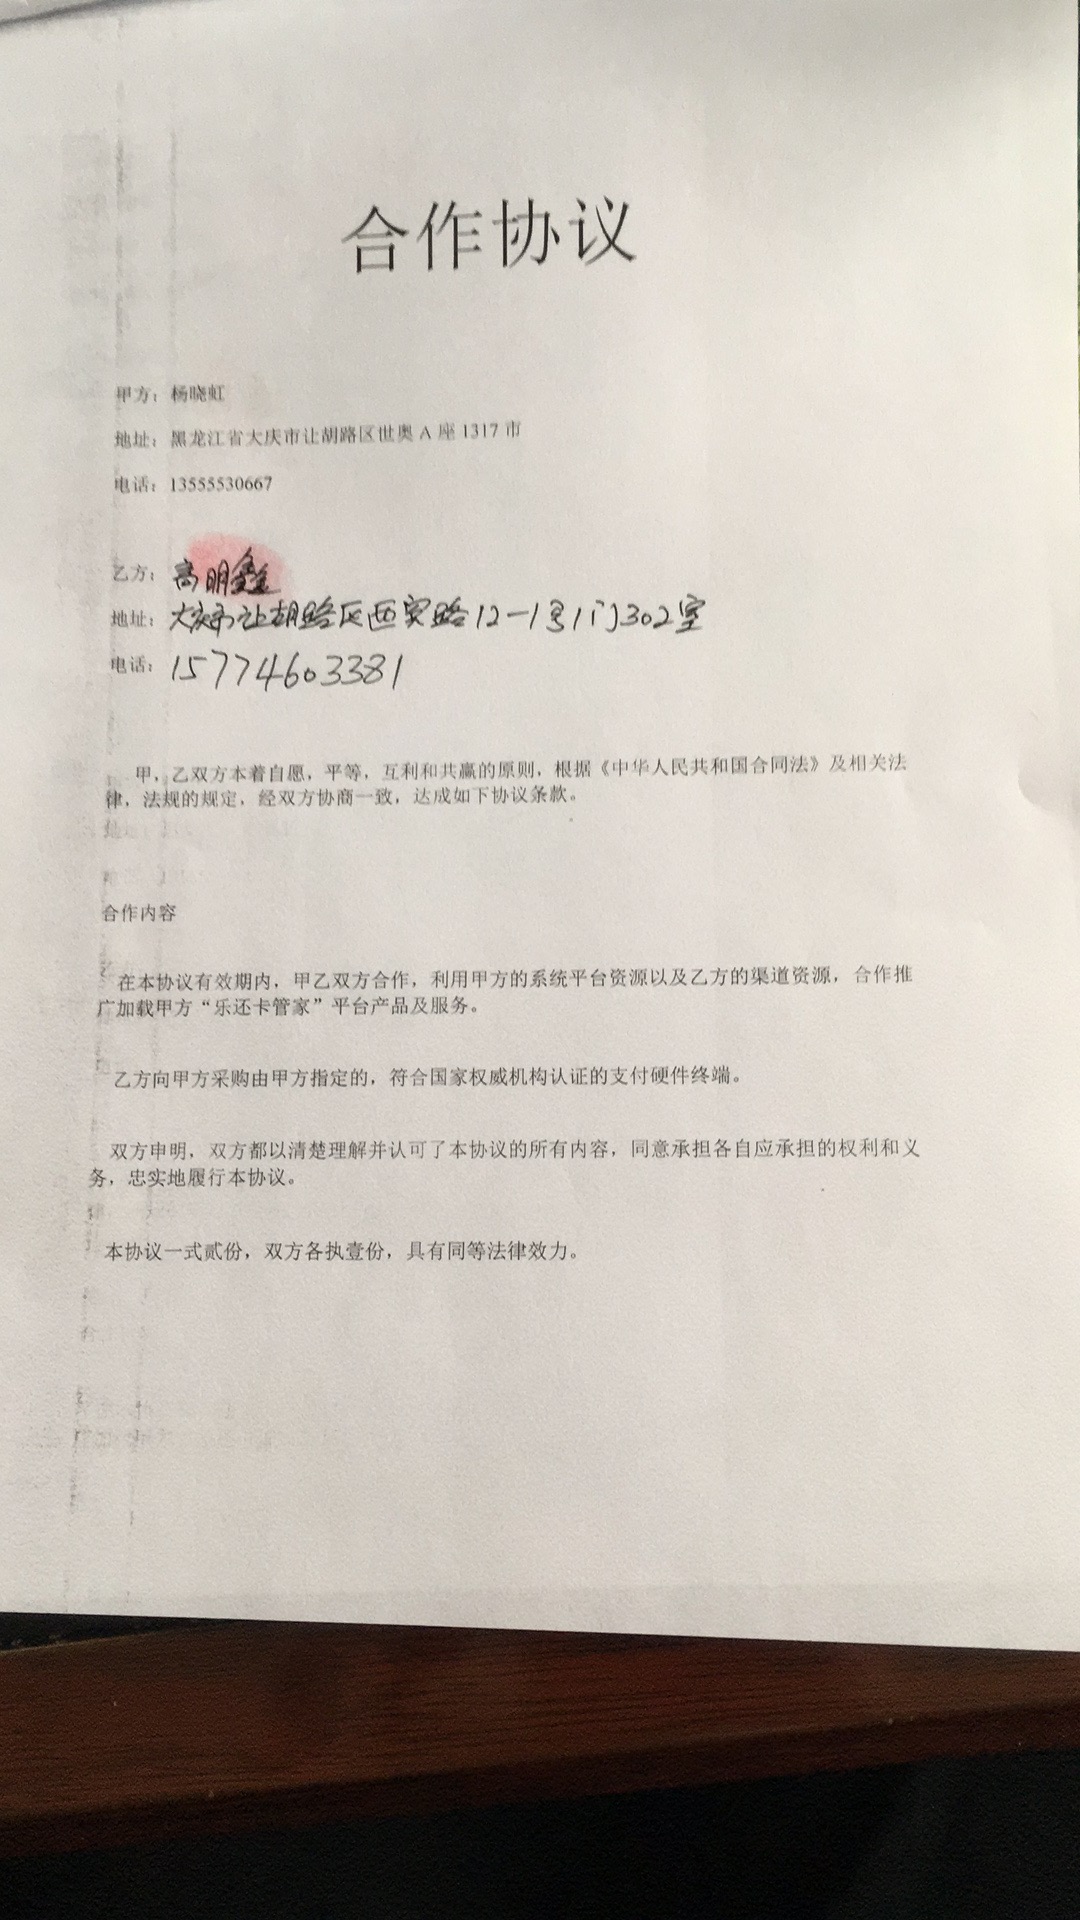 合作协议
甲方：杨晓虹
地址：黑龙江省大庆市让胡路区世奥 A 座 1317 市
电话：13555530667
乙方：高明鑫
地址：大庆市让胡路区西宾路12-1号1门302室
电话：15774603381
甲，乙双方本着自愿，平等，互利和共赢的原则，根据《中华人民共和国合同法》及相关法
律，法规的规定，经双方协商一致，达成如下协议条款。
合作内容
在本协议有效期内，甲乙双方合作，利用甲方的系统平台资源以及乙方的渠道资源，合作推
广加载甲方“乐还卡管家”平台产品及服务。
乙方向甲方采购由甲方指定的，符合国家权威机构认证的支付硬件终端。
双方申明，双方都以清楚理解并认可了本协议的所有内容，同意承担各自应承担的权利和义
务，忠实地履行本协议。
本协议一式贰份，双方各执壹份，具有同等法律效力。